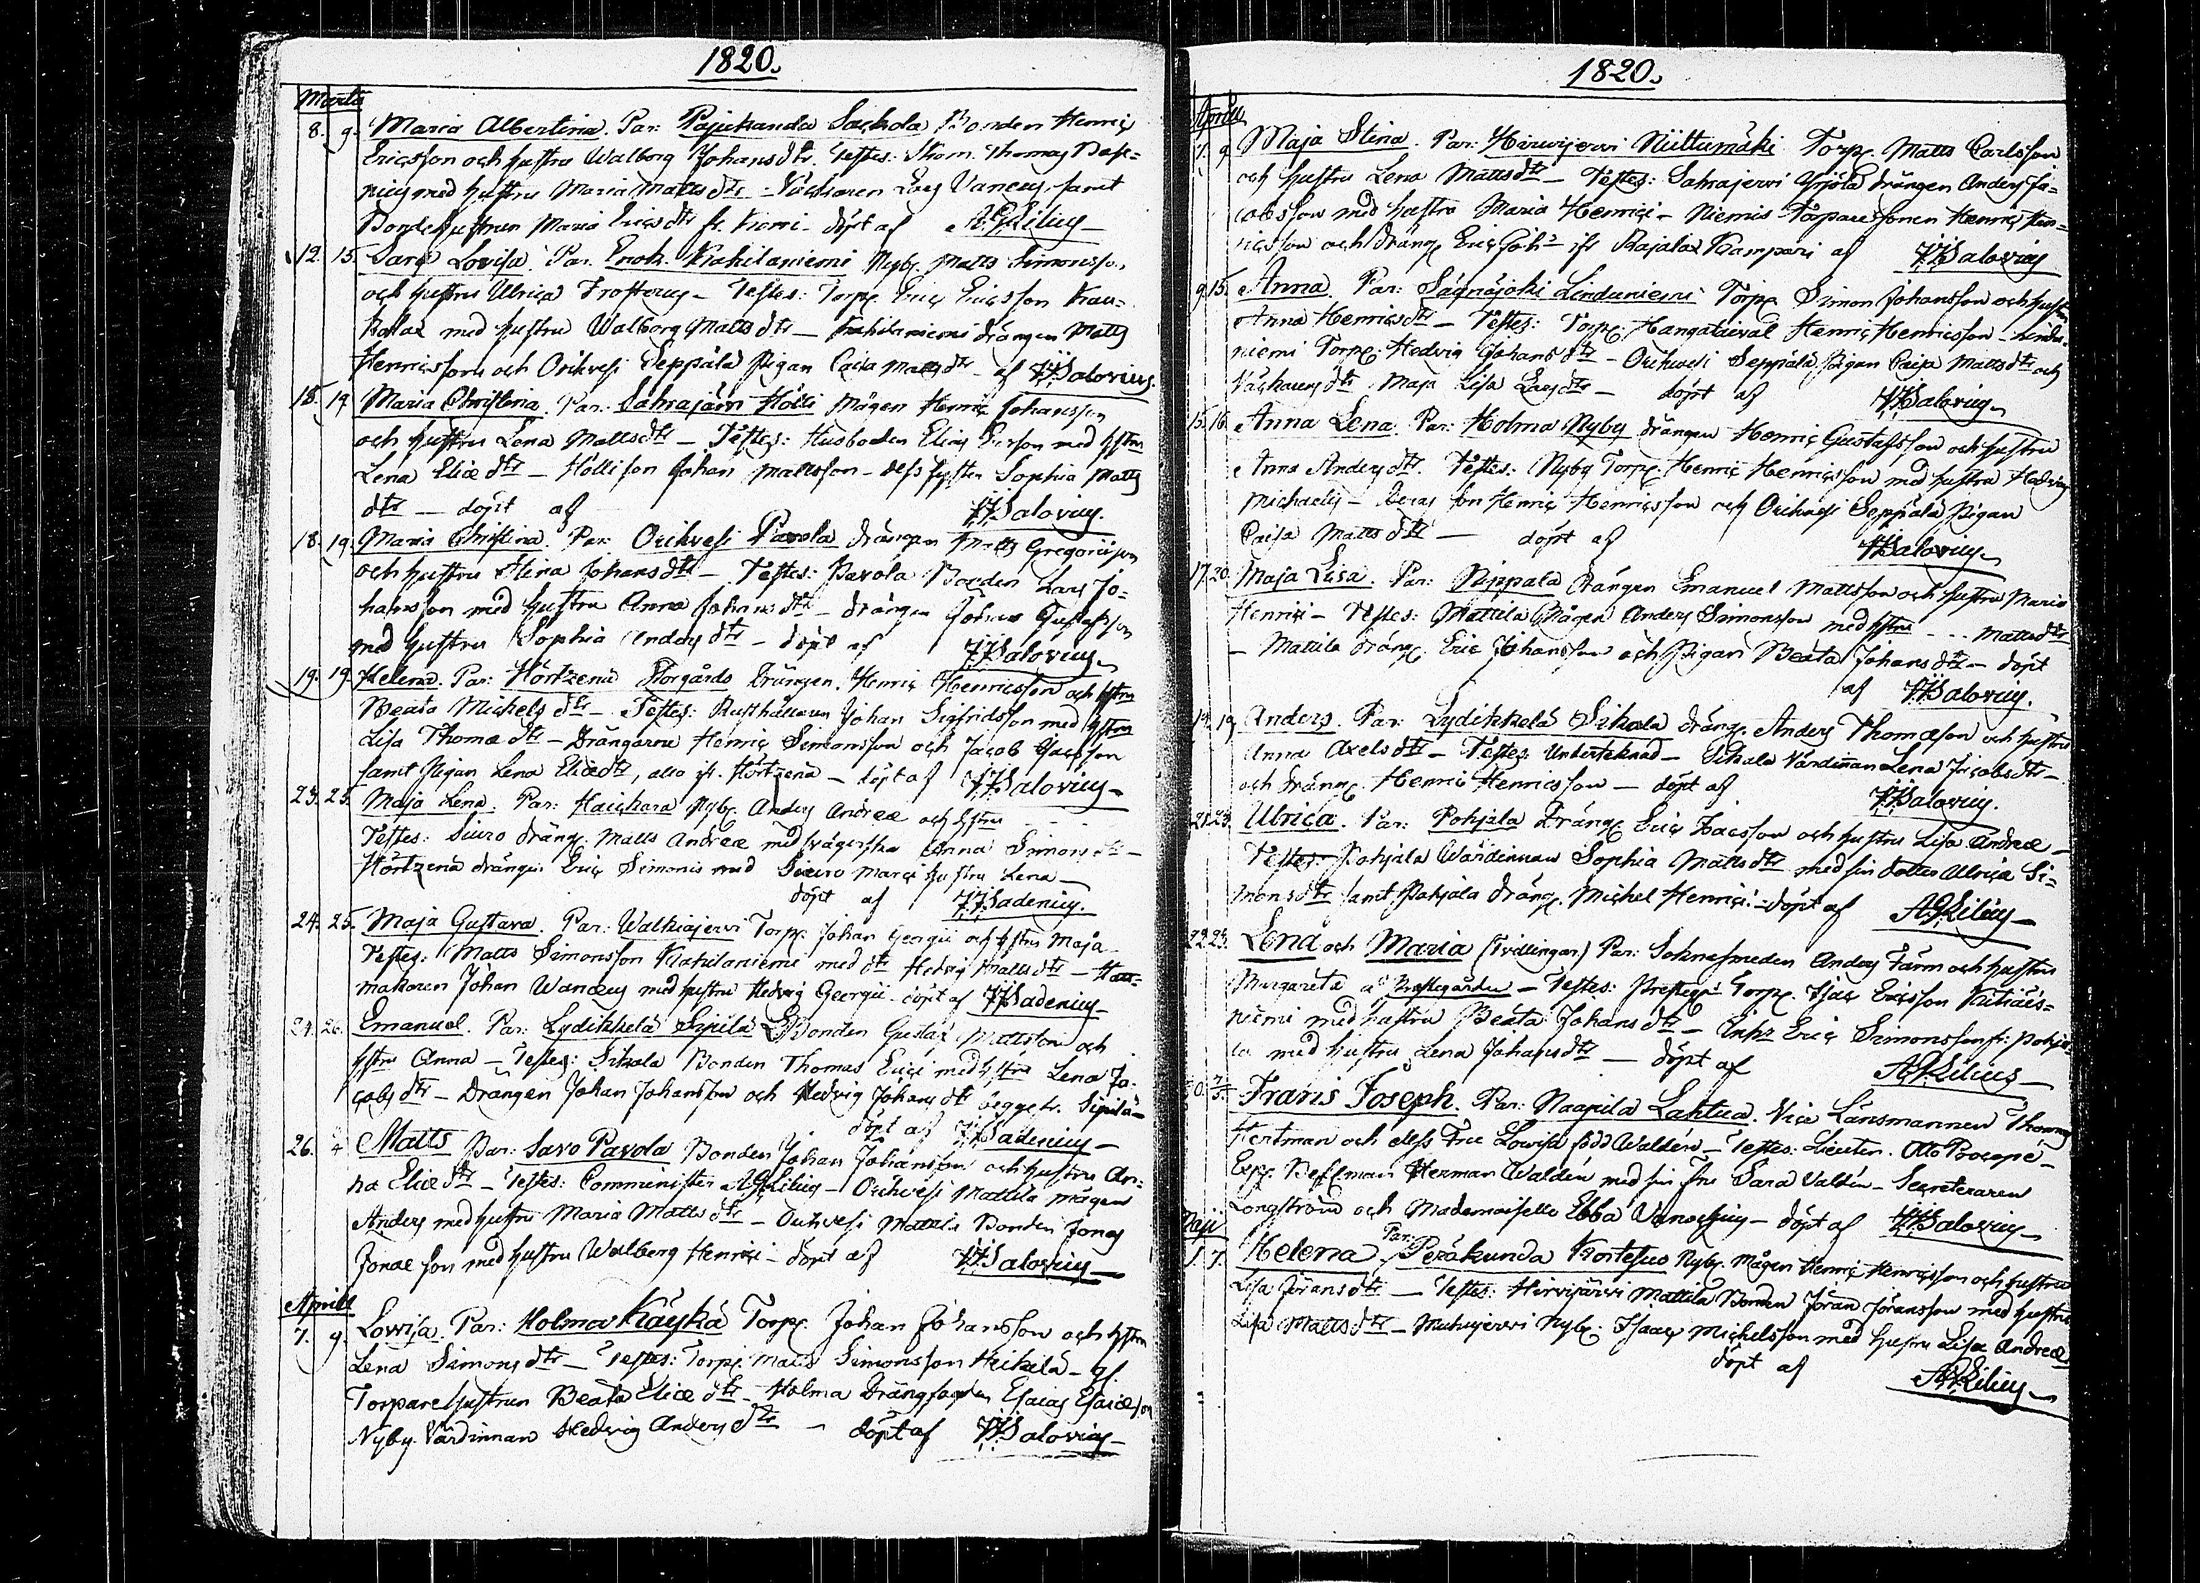 1820.
Martii
8. 9. Maria Albertina. Par: Pajukanda Sackola Bonden Henric
Ericsson och hustru Walborg Johansdtr. Testes: Thomas
med hustru Maria Mattsdtr - Lars samt
Bondehustrun Maria Ericsdtr fr. Niemi - döpt af A:G:Lilius
12. 15. Sara Lovisa. Par. Enok. Kahilaniemi Nyby. Matts Simonsson
och hustru Ulrica - Testes: Torp. Eric Ericsson
med hustru Walborg Mattsdtr - Kahilaniemi drängen Matts
Henricsson och Orihvesi Seppälä Pigan Caisa Mattsdtr - af J:J:Salovius.
18. 19. Maria Christina. Par: Sahrajärvi Hölli Mågen Henric Johansson
och hustru Lena Mattsdtr - Testes: Husbonden Elias Ersson med hstru
Lena Eliædtr - Hölli son Johan Mattsson - dess syster Sophia Matts
dtr - döpt af J:J:Salovius.
18. 19. Maria Christina. Par: Orihvesi Pavola drängen Matts Gregoriisson
och hustru Stina Johansdtr - Testes: Pavola Bonden Lars Jo-
hansson med hustru Anna Johansdtr - drängen Johan Gustafsson
med hustru Sophia Andersdtr - döpt af J:J:Salovius
19. 19. Helena. Par: Hörtzenä Storgårds Drängen Henric Henricsson och hstru
Beata Michelsdtr - Testes: Rusthållaren Johan Sigfridsson med hstru
Lisa Thomædtr - Drängarne Henric Simonsson och Jacob
samt Pigan Lena Eliædtr, alla fr. Hörtzenä - döpt af J:J:Salovius
23. 25. Maja Lena. Par: Haichara Nyby. Anders Andreæ och hstru - - -
Testes: Siuro dräng. Matts Andreæ med svägerska Anna Simonsdtr -
Hörtzenä drängen Eric Simonis med Siuro hustru Lena -
döpt af J:J:Sadenius.
24. 25. Maja Gustava. Par: Walkiajervi Torp. Johan Georgii och hstru Maja -
Testes: Matts Simonsson Kahilaniemi med dtr Hedvig Mattsdtr - Hatt-
makaren Johan Wanæus med hustru Hedvig Georgii - döpt af J:J:Sadenius
24. 26. Emanuel. Par: Lydikkelä Sipilä Bonden Gustaf Mattsson och
hstru Anna - Testes: Sikala Bonden Thomas Erici med hstru Lena Ja-
cobsdtr - Drängen Johan Johansson och Hedvig Johansdtr begge fr. Sipilä -
döpt af J:J:Sadenius
26. Matts Par: Savo Pavola Bonden Johan Johansson och hustru An-
na Eliædtr - Testes: Comminister A:G:Lilius - Orihvesi Mattila mågen
Anders med hustru Maria Mattsdtr - Orihvesi Mattila Bonden Jonas
Jonæ son med hustru Walborg Henrici - döpt af J:J:Salovius
Aprill
7. 9. Lovisa. Par: Holma Käyhä Torp. Johan Johansson och hstru
Lena Simonsdtr - Testes: Torp. Matts Simonsson Heikilä -
Torparehustrun Beata Eliædtr - Holma Esaias Esaiæson
Nyby. Värdinnan Hedvig Andersdtr - döpt af J:J:Salovius
1820.
Aprill
7. 9. Maja Stina. Par: Hirvijervi Niittumäki Torp. Matts Carlsson
och hustru Lena Mattsdtr - Testes: Sahrajervi Yrjölä drängen Anders Ja-
cobsson med hustru Maria Henrici - Niemis Torparesonen Henric Hen-
ricsson och dräng Eric af J:J:Salovius
9. 15. Anna. Par: Sägnäjoki Linduniemi Torp. Simon Johansson och hustru
Anna Henricsdtr - Testes: Torp. Hangataival Henric Henricsson - Lindu-
niemi Torp. Hedvig Johansdtr - Orihvesi Seppälä Pigan Caisa Mattsdtr och
Maja Lisa Larsdtr - döpt af J:J:Salovius
15. 16. Anna Lena. Par: Holma Nyby drängen Henric Gustafsson och hustru
Anna Andersdtr. Testes: Nyby Torp. Henric Henricsson med hustru Hedvig
Michaelis - deras son Henric Henricsson och Orihvesi Seppälä Pigan
Caisa Mattsdtr - döpt af J:J:Salovius
17. 20. Maja Lisa. Par: Pippala drängen Emanuel Mattsson och hustru Maria
Henrici - Testes: Mattila Mågen Anders Simonsson med hstru - - - Mattsdtr
- Mattila dräng. Eric Johansson och Pigan Beata Johansdtr - döpt
af J:J:Salovius.
19. 19. Anders. Par: Lydikkelä Sikala dräng. Anders Thomæson och hustru
Anna Axelsdtr - Testes: Underteknad - Sikala Värdinnan Lena Jacobsdtr -
och dräng. Henric Henricsson - döpt af J:J:Salovius.
21. 23. Ulrica. Par: Pohjala Dräng. Eric Isacsson och hustru Lisa Andreæ -
Testes: Pohjala Wärdinnan Sophia Mattsdtr med sin dotter Ulrica Si-
monsdtr samt Pohjala dräng. Michel Henrici - döpt af A:G:Lilius
22. 23. Lena och Maria (Tvillingar) Par: Soknesmeden Anders Färm och hustru
Margareta å Prestegården - Testes: Torp. Isac Ericsson
niemi med hustru Beata Johansdtr - Eric Simonsson fr. Pohja-
la med hustru Lena Johansdtr - döpt af A:G:Lilius
Frans Joseph. Par: Naapila Lahtua. Vice Länsmannen Thomas
Hertman och dess Fru Lovisa född Waldén - Testes: Lieuten. Otto Procopé -
Herman Waldén med sin Fru Sara Valdén - Secreteraren
Longström och Mademoiselle Ebba - döpt af J:J:Salovius
Maji
1. 7. Helena Par: Peräkunda Kortesuo Nyby. Mågen Henric Henricsson och hustru
Lisa Göransdtr - Testes: Hirvijärvi Mattila Bonden Jöran Jöransson med hustru
Lisa Mattsdtr - Nyby. Isaac Michelsson med hustru Lisa Andreæ
döpt af A:G:Lilius